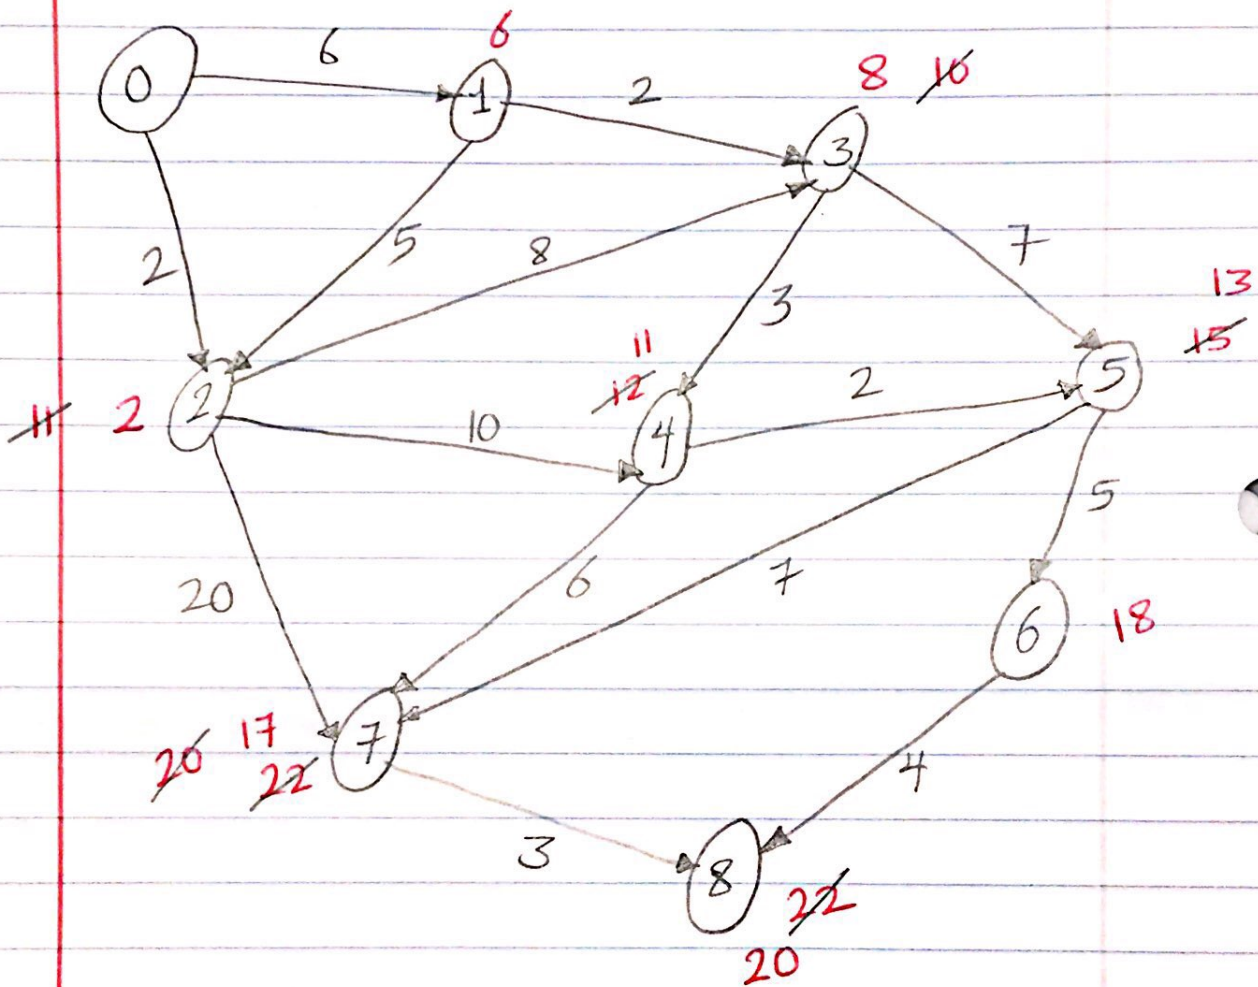 6
6
0
1
2
8 10
3
2
5
8
7
3
13
15
11
12
2
5
11 2
2
10
4
5
20
6
7
6
18
20 17
22
7
4
3
8
22
20